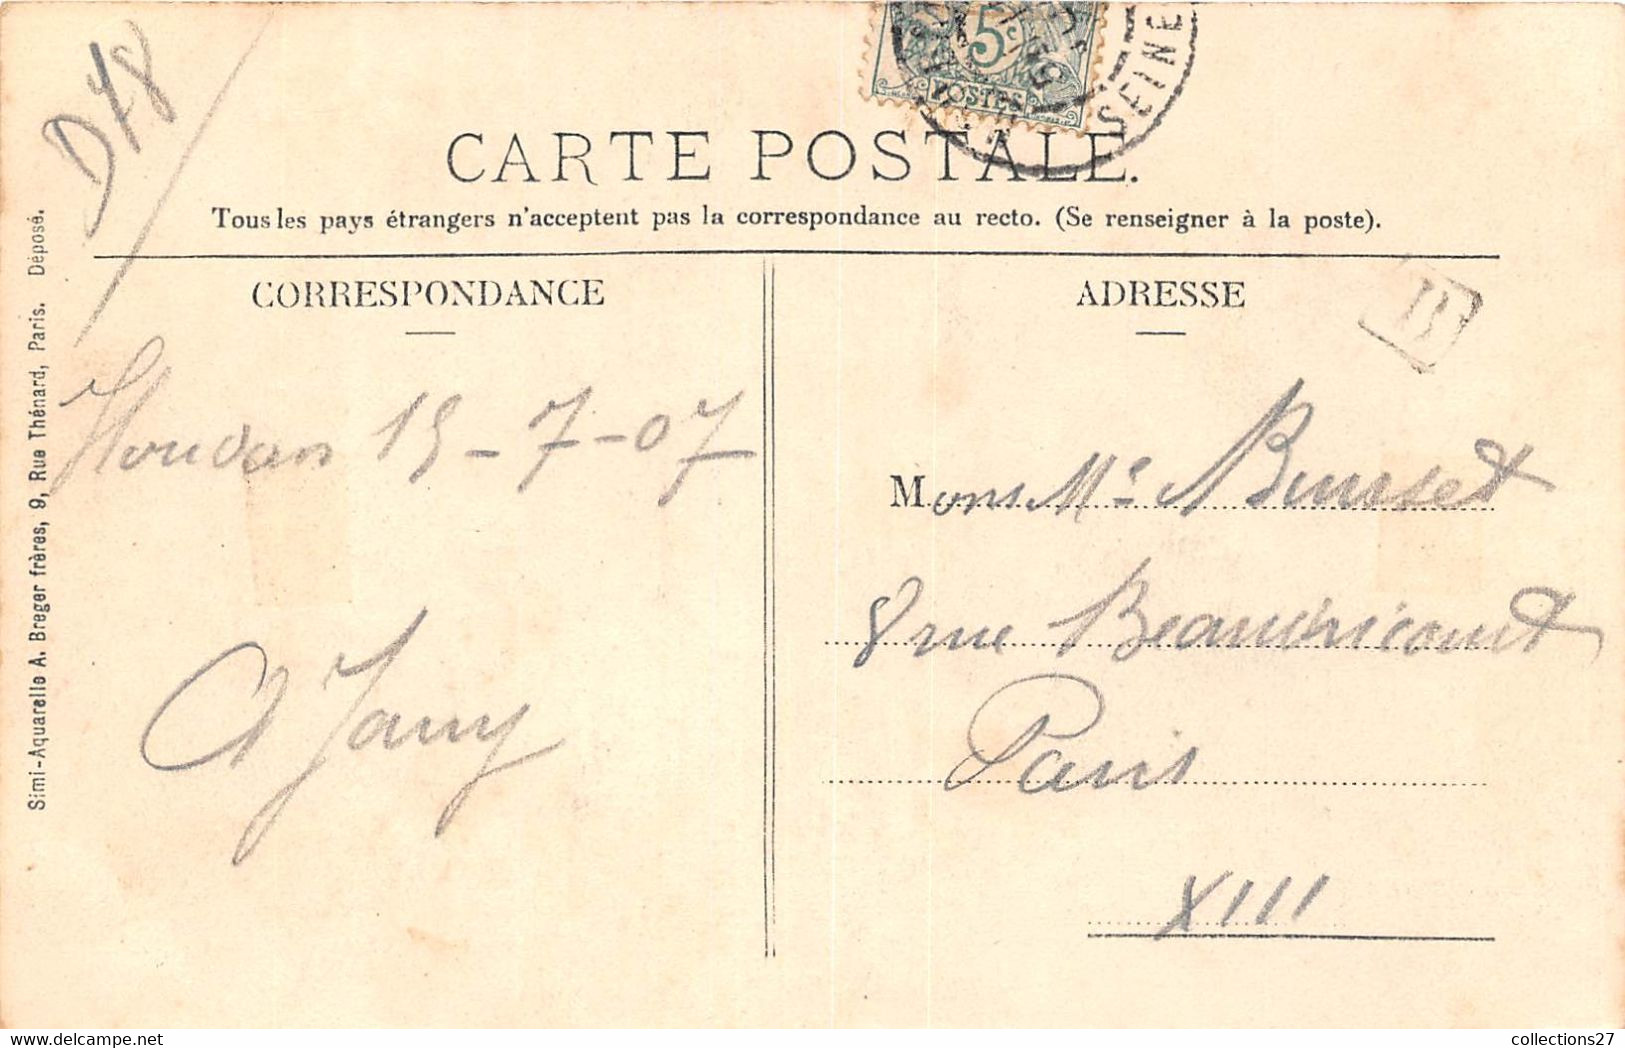 D78
5c
POSTES
SEINE
CARTE POSTALE.
Tous les pays étrangers n'acceptent pas la correspondance au recto. (Se renseigner à la poste).
Simi-Aquarelle A. Breger frères, 9, Rue Thénard, Paris. Déposé.
CORRESPONDANCE
Houdan 15-7-07
A Jamy
ADRESSE
Mons Me
8 rue
Paris
XIII
collections27